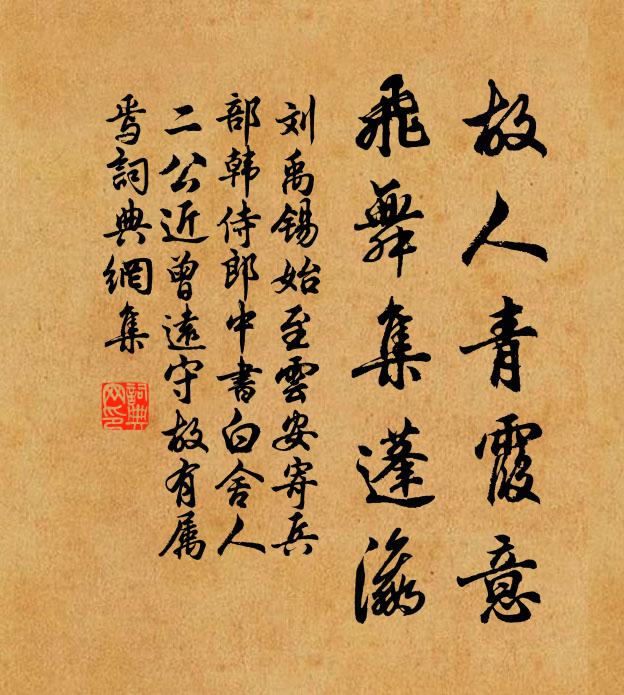 故人青霞意
飛舞集蓬瀛
刘禹锡始至雲安寄兵
部韩侍郎中書白舍人
二公近曾遠守故有属
焉詞典網集
詞典
网印